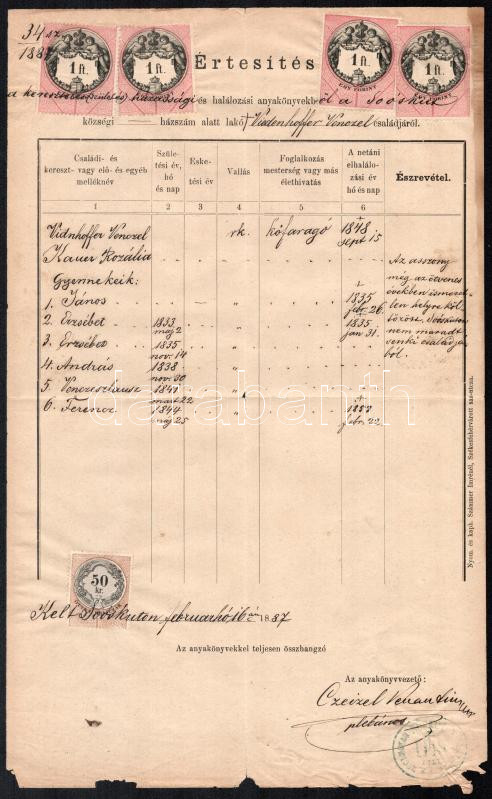 34 sz
1887
1 ft. 1 ft. 1 ft. 1 ft.
EGY FORINT
Értesítés
a keresztelési (születési) házassági és halálozási anyakönyvekből a Soóskúti
községi — házszám alatt lakó † Videnhoffer Venczel családjáról.
Családi- és kereszt- vagy elő- és egyéb melléknév
Születési év, hó és nap
Esketési év
Vallás
Foglalkozás mesterség vagy más élethivatás
A netáni elhalálozási év hó és nap
Észrevétel.
1 2 3 4 5 6
Vidnhoffer Venczel rk. kőfaragó † 1848 sept 15
Kauer Rozália
Gyermekeik:
1. János † 1835 febr. 26.
2. Erzsébet 1833 maj 2 1835. jan 31.
3. Erzsébet 1835 nov. 14
4. András 1838. nov. 30
5. Venczeslausz 1841 mart 22
6. Ferencz 1844 maj 25 † 1850 febr. 22
Az asszony
még az ötvenes
években ismeret
len helyre köl
tözött, Soóskúton
nem maradt
senki családjá
ból.
darabanth
Nyom. és kaph. Számmer Imrénél, Székesfehérvárott saz-utcza.
50 kr.
Kelt Soóskuton februarhó 16 án 1887
Az anyakönyvekkel teljesen összhangzó
Az anyakönyvvezető:
Czeizel Venantius
plébános